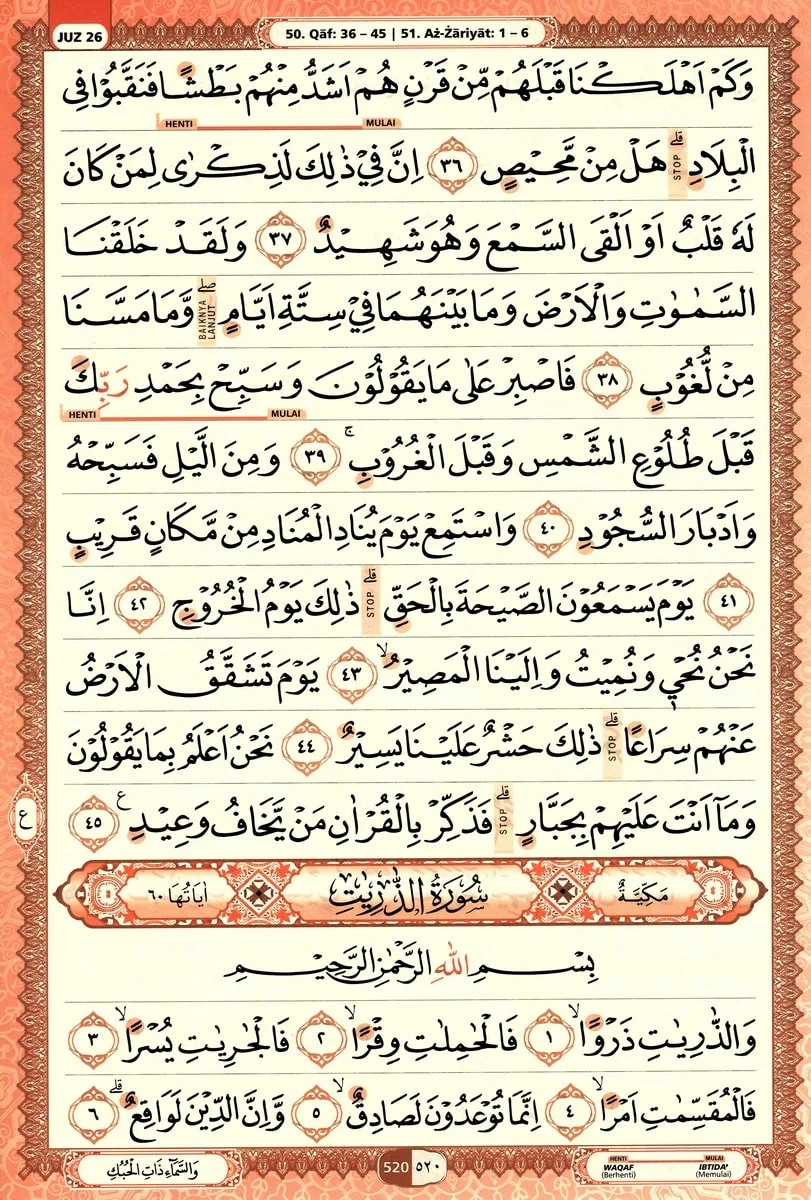 JUZ 26
50. Qāf: 36 – 45 | 51. Aż-Żāriyāt: 1 – 6
وَكَمْ اَهْلَكْنَا قَبْلَهُمْ مِّنْ قَرْنٍ هُمْ اَشَدُّ مِنْهُمْ بَطْشًا فَنَقَّبُوْا فِى
HENTI MULAI
الْبِلَادِۗ STOP هَلْ مِنْ مَّحِيْصٍ ٣٦ اِنَّ فِيْ ذٰلِكَ لَذِكْرٰى لِمَنْ كَانَ
لَهٗ قَلْبٌ اَوْ اَلْقَى السَّمْعَ وَهُوَ شَهِيْدٌ ٣٧ وَلَقَدْ خَلَقْنَا
السَّمٰوٰتِ وَالْاَرْضَ وَمَا بَيْنَهُمَا فِيْ سِتَّةِ اَيَّامٍۖ BAIKNYA LANJUT وَّمَا مَسَّنَا
مِنْ لُّغُوْبٍ ٣٨ فَاصْبِرْ عَلٰى مَا يَقُوْلُوْنَ وَسَبِّحْ بِحَمْدِ رَبِّكَ
HENTI MULAI
قَبْلَ طُلُوْعِ الشَّمْسِ وَقَبْلَ الْغُرُوْبِۚ ٣٩ وَمِنَ الَّيْلِ فَسَبِّحْهُ
وَاَدْبَارَ السُّجُوْدِ ٤٠ وَاسْتَمِعْ يَوْمَ يُنَادِ الْمُنَادِ مِنْ مَّكَانٍ قَرِيْبٍ
٤١ يَوْمَ يَسْمَعُوْنَ الصَّيْحَةَ بِالْحَقِّۗ STOP ذٰلِكَ يَوْمُ الْخُرُوْجِ ٤٢ اِنَّا
نَحْنُ نُحْيٖ وَنُمِيْتُ وَاِلَيْنَا الْمَصِيْرُۙ ٤٣ يَوْمَ تَشَقَّقُ الْاَرْضُ
عَنْهُمْ سِرَاعًاۗ STOP ذٰلِكَ حَشْرٌ عَلَيْنَا يَسِيْرٌ ٤٤ نَحْنُ اَعْلَمُ بِمَا يَقُوْلُوْنَ
وَمَآ اَنْتَ عَلَيْهِمْ بِجَبَّارٍۗ STOP فَذَكِّرْ بِالْقُرْاٰنِ مَنْ يَّخَافُ وَعِيْدِ ع ٤٥
ع
مَكِّيَّةٌ سُوْرَةُ الذّٰرِيٰتِ اٰيَاتُهَا ٦٠
بِسْمِ اللّٰهِ الرَّحْمٰنِ الرَّحِيْمِ
وَالذّٰرِيٰتِ ذَرْوًاۙ ١ فَالْحٰمِلٰتِ وِقْرًاۙ ٢ فَالْجٰرِيٰتِ يُسْرًاۙ ٣
فَالْمُقَسِّمٰتِ اَمْرًاۙ ٤ اِنَّمَا تُوْعَدُوْنَ لَصَادِقٌۙ ٥ وَّاِنَّ الدِّيْنَ لَوَاقِعٌۗ ٦
وَالسَّمَاۤءِ ذَاتِ الْحُبُكِ
520 ٥٢٠
HENTI MULAI
WAQAF (Berhenti) IBTIDA' (Memulai)